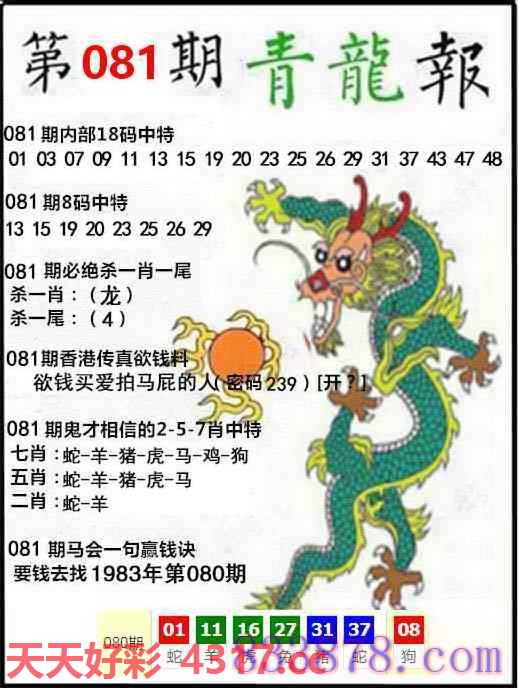 第081期青龍報
081期内部18码中特
01 03 07 09 11 13 15 19 20 23 25 26 29 31 37 43 47 48
081期8码中特
13 15 19 20 23 25 26 29
081期必绝杀一肖一尾
杀一肖：（龙）
杀一尾：（4）
081期香港传真欲钱料
欲钱买爱拍马屁的人（密码239）[开？]
081期鬼才相信的2-5-7肖中特
七肖：蛇-羊-猪-虎-马-鸡-狗
五肖：蛇-羊-猪-虎-马
二肖：蛇-羊
081期马会一句赢钱诀
要钱去找1983年第080期
080期 01 11 16 27 31 37 08
蛇 羊 虎 兔 猪 蛇 狗
天天好彩 4317.cc